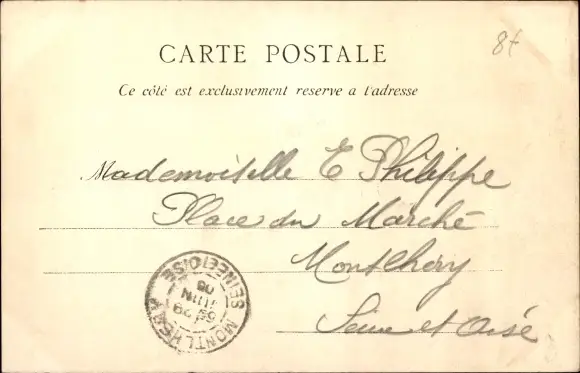 8f
CARTE POSTALE
Ce côté est exclusivement reserve a l'adresse
Mademoiselle E Philippe
Place du Marché
Montlhéry
Seine et Oise
MONTLHERY
SEINE ET OISE
29
JUIN
05